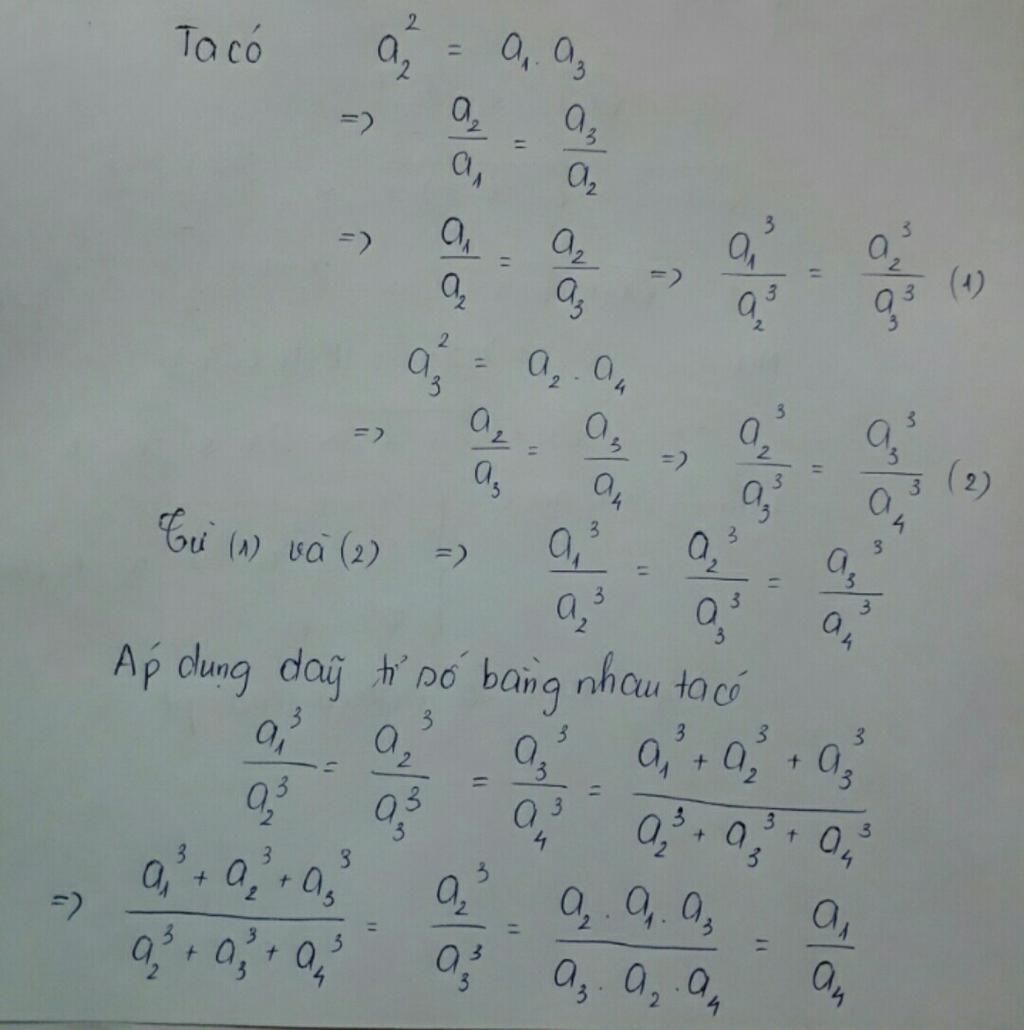 Ta có a₂² = a₁ . a₃
=> a₂/a₁ = a₃/a₂
=> a₁/a₂ = a₂/a₃ => a₁³/a₂³ = a₂³/a₃³ (1)
a₃² = a₂ . a₄
=> a₂/a₃ = a₃/a₄ => a₂³/a₃³ = a₃³/a₄³ (2)
Từ (1) và (2) => a₁³/a₂³ = a₂³/a₃³ = a₃³/a₄³
Áp dụng daỹ tỉ số bằng nhau ta có
a₁³/a₂³ = a₂³/a₃³ = a₃³/a₄³ = (a₁³ + a₂³ + a₃³)/(a₂³ + a₃³ + a₄³)
=> (a₁³ + a₂³ + a₃³)/(a₂³ + a₃³ + a₄³) = a₂³/a₃³ = (a₂ . a₁ . a₃)/(a₃ . a₂ . a₄) = a₁/a₄